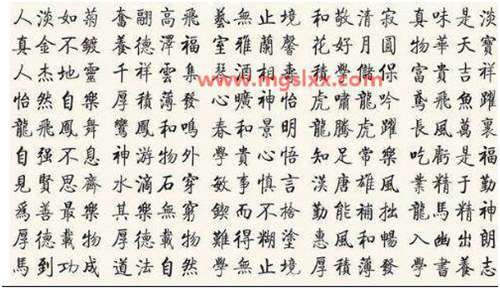 人淡如菊 奮翮高飛 藝無止境 和敬清寂 真味是淡
真金不鍍 養德澤福 室雅蘭馨 花好月圓 物華天寶
人杰地靈 千祥雲集 酒相 富貴吉祥
www.mgslxx.com
怡然自樂 厚積薄發 心曠神怡 虎嘯龍吟 鳶飛魚躍
龍飛鳳舞 鸞鳳和鳴 春和景明 龍騰虎躍 長風萬裏
自强不息 神游物外 學貴心悟 知足常樂 吃虧是福
見賢思齊 水滴石穿 敏事慎言 漢唐雄風 業精于勤
爲善最樂 其樂無窮 鍥而不捨 勤能補拙 龍馬精神
厚德載物 厚德載物 難得糊塗 惠風和暢 入幽出朗
馬到功成 道法自然 學無止境 厚積薄發 學書養志